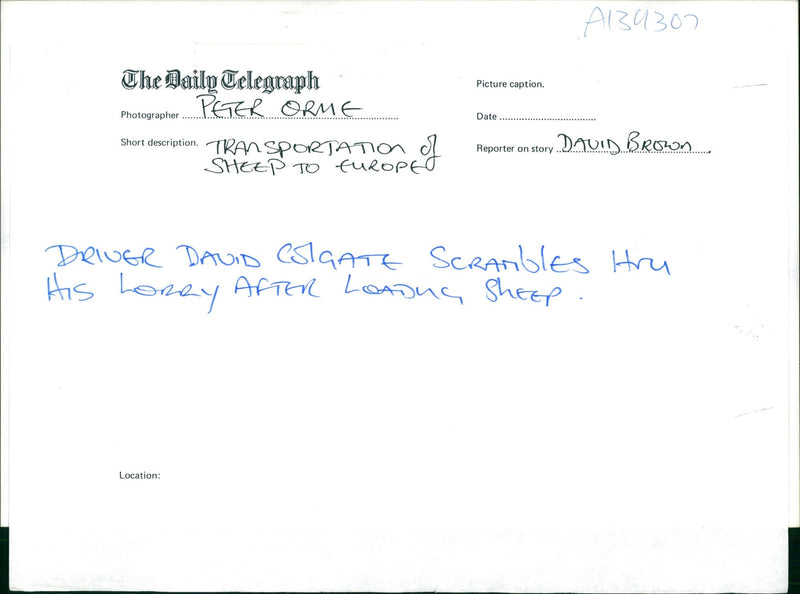 A139307
The Daily Telegraph
Picture caption.
Photographer PETER ORME
Date
Short description. TRANSPORTATION of
SHEEP TO EUROPE
Reporter on story DAVID BROWN
DRIVER DAVID COLGATE SCRAMBLES thru
HIS LORRY AFTER LOADING SHEEP.
Location: